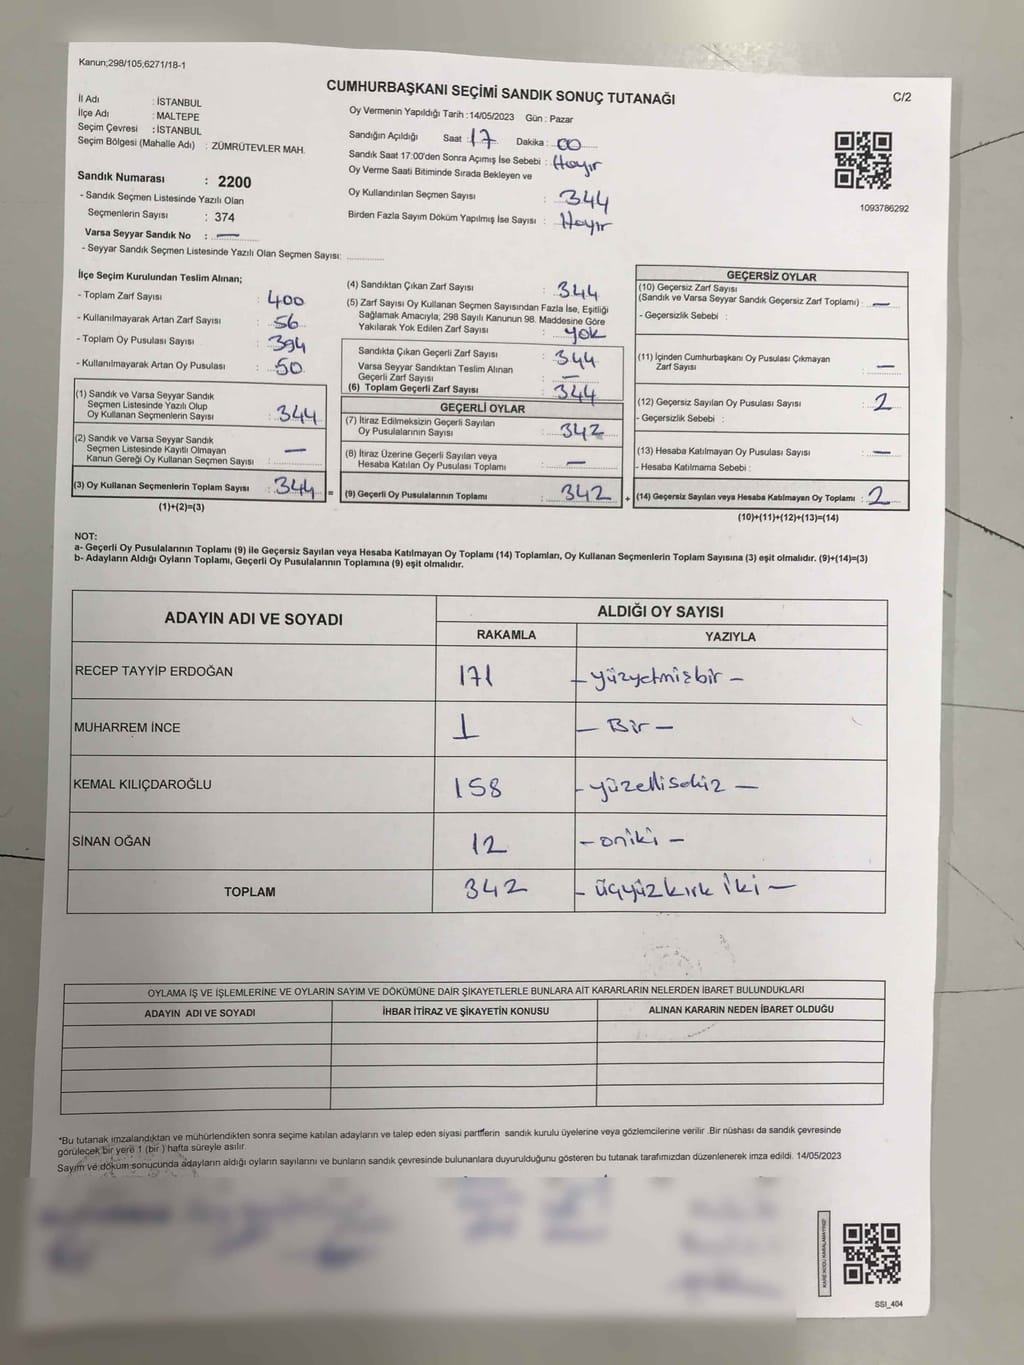 Kanun;298/105;6271/18-1
CUMHURBAŞKANI SEÇİMİ SANDIK SONUÇ TUTANAĞI
C/2
İl Adı : İSTANBUL
İlçe Adı : MALTEPE
Seçim Çevresi : İSTANBUL
Seçim Bölgesi (Mahalle Adı) : ZÜMRÜTEVLER MAH.
Sandık Numarası : 2200
- Sandık Seçmen Listesinde Yazılı Olan
Seçmenlerin Sayısı : 374
Varsa Seyyar Sandık No : —
- Seyyar Sandık Seçmen Listesinde Yazılı Olan Seçmen Sayısı:
Oy Vermenin Yapıldığı Tarih :14/05/2023 Gün : Pazar
Sandığın Açıldığı Saat : 17 Dakika : 00
Sandık Saat 17:00'den Sonra Açımış İse Sebebi : Hayır
Oy Verme Saati Bitiminde Sırada Bekleyen ve
Oy Kullandırılan Seçmen Sayısı : 344
Birden Fazla Sayım Döküm Yapılmış İse Sayısı : Hayır
1093786292
İlçe Seçim Kurulundan Teslim Alınan;
- Toplam Zarf Sayısı : 400
- Kullanılmayarak Artan Zarf Sayısı : 56
- Toplam Oy Pusulası Sayısı : 394
- Kullanılmayarak Artan Oy Pusulası : 50
(1) Sandık ve Varsa Seyyar Sandık
Seçmen Listesinde Yazılı Olup
Oy Kullanan Seçmenlerin Sayısı : 344
(2) Sandık ve Varsa Seyyar Sandık
Seçmen Listesinde Kayıtlı Olmayan
Kanun Gereği Oy Kullanan Seçmen Sayısı : —
(3) Oy Kullanan Seçmenlerin Toplam Sayısı : 344 =
(1)+(2)=(3)
(4) Sandıktan Çıkan Zarf Sayısı : 344
(5) Zarf Sayısı Oy Kullanan Seçmen Sayısından Fazla İse, Eşitliği
Sağlamak Amacıyla; 298 Sayılı Kanunun 98. Maddesine Göre
Yakılarak Yok Edilen Zarf Sayısı : yok
Sandıkta Çıkan Geçerli Zarf Sayısı : 344
Varsa Seyyar Sandıktan Teslim Alınan
Geçerli Zarf Sayısı : —
(6) Toplam Geçerli Zarf Sayısı : 344
GEÇERLİ OYLAR
(7) İtiraz Edilmeksizin Geçerli Sayılan
Oy Pusulalarının Sayısı : 342
(8) İtiraz Üzerine Geçerli Sayılan veya
Hesaba Katılan Oy Pusulası Toplamı : —
(9) Geçerli Oy Pusulalarının Toplamı : 342 +
GEÇERSİZ OYLAR
(10) Geçersiz Zarf Sayısı
(Sandık ve Varsa Seyyar Sandık Geçersiz Zarf Toplamı) : —
- Geçersizlik Sebebi :
(11) İçinden Cumhurbaşkanı Oy Pusulası Çıkmayan
Zarf Sayısı : —
(12) Geçersiz Sayılan Oy Pusulası Sayısı : 2
- Geçersizlik Sebebi :
(13) Hesaba Katılmayan Oy Pusulası Sayısı : —
- Hesaba Katılmama Sebebi :
(14) Geçersiz Sayılan veya Hesaba Katılmayan Oy Toplamı : 2
(10)+(11)+(12)+(13)=(14)
NOT:
a- Geçerli Oy Pusulalarının Toplamı (9) ile Geçersiz Sayılan veya Hesaba Katılmayan Oy Toplamı (14) Toplamları, Oy Kullanan Seçmenlerin Toplam Sayısına (3) eşit olmalıdır. (9)+(14)=(3)
b- Adayların Aldığı Oyların Toplamı, Geçerli Oy Pusulalarının Toplamına (9) eşit olmalıdır.
ADAYIN ADI VE SOYADI
ALDIĞI OY SAYISI
RAKAMLA YAZIYLA
RECEP TAYYİP ERDOĞAN 171 — yüzyetmişbir —
MUHARREM İNCE 1 — Bir —
KEMAL KILIÇDAROĞLU 158 - yüzellisekiz —
SİNAN OĞAN 12 — oniki —
TOPLAM 342 - üçyüzkırk iki —
OYLAMA İŞ VE İŞLEMLERİNE VE OYLARIN SAYIM VE DÖKÜMÜNE DAİR ŞİKAYETLERLE BUNLARA AİT KARARLARIN NELERDEN İBARET BULUNDUKLARI
ADAYIN ADI VE SOYADI İHBAR İTİRAZ VE ŞİKAYETİN KONUSU ALINAN KARARIN NEDEN İBARET OLDUĞU
*Bu tutanak imzalandıktan ve mühürlendikten sonra seçime katılan adayların ve talep eden siyasi partilerin sandık kurulu üyelerine veya gözlemcilerine verilir .Bir nüshası da sandık çevresinde
görülecek bir yere 1 (bir ) hafta süreyle asılır.
Sayım ve döküm sonucunda adayların aldığı oyların sayılarını ve bunların sandık çevresinde bulunanlara duyurulduğunu gösteren bu tutanak tarafımızdan düzenlenerek imza edildi. 14/05/2023
KARE KODU KARALAMAYINIZ!
SSI_404